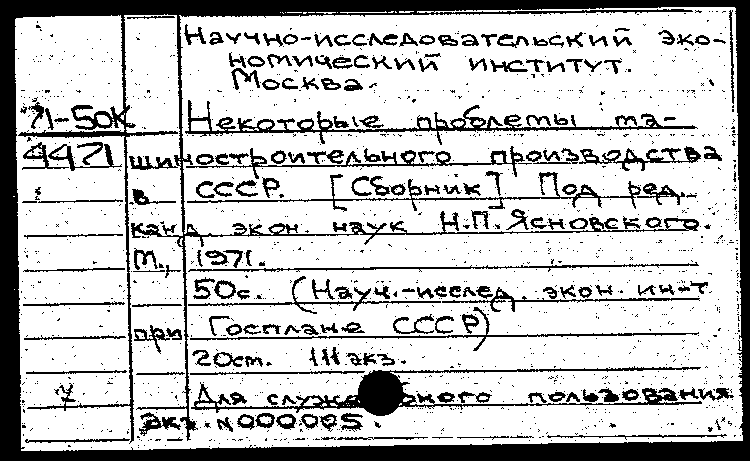 Научно-исследовательский эко-
номический институт.
Москва.
71-50К Некоторые проблемы ма-
4471 шиностроительного производства
в СССР. [Сборник] Под ред.
канд. экон. наук Н.П. Ясновского.
М., 1971.
50с. (Науч.-исслед. экон. ин-т
при Госплане СССР)
20см. 111 экз.
7 Для служебного пользования
Экз. N000005.